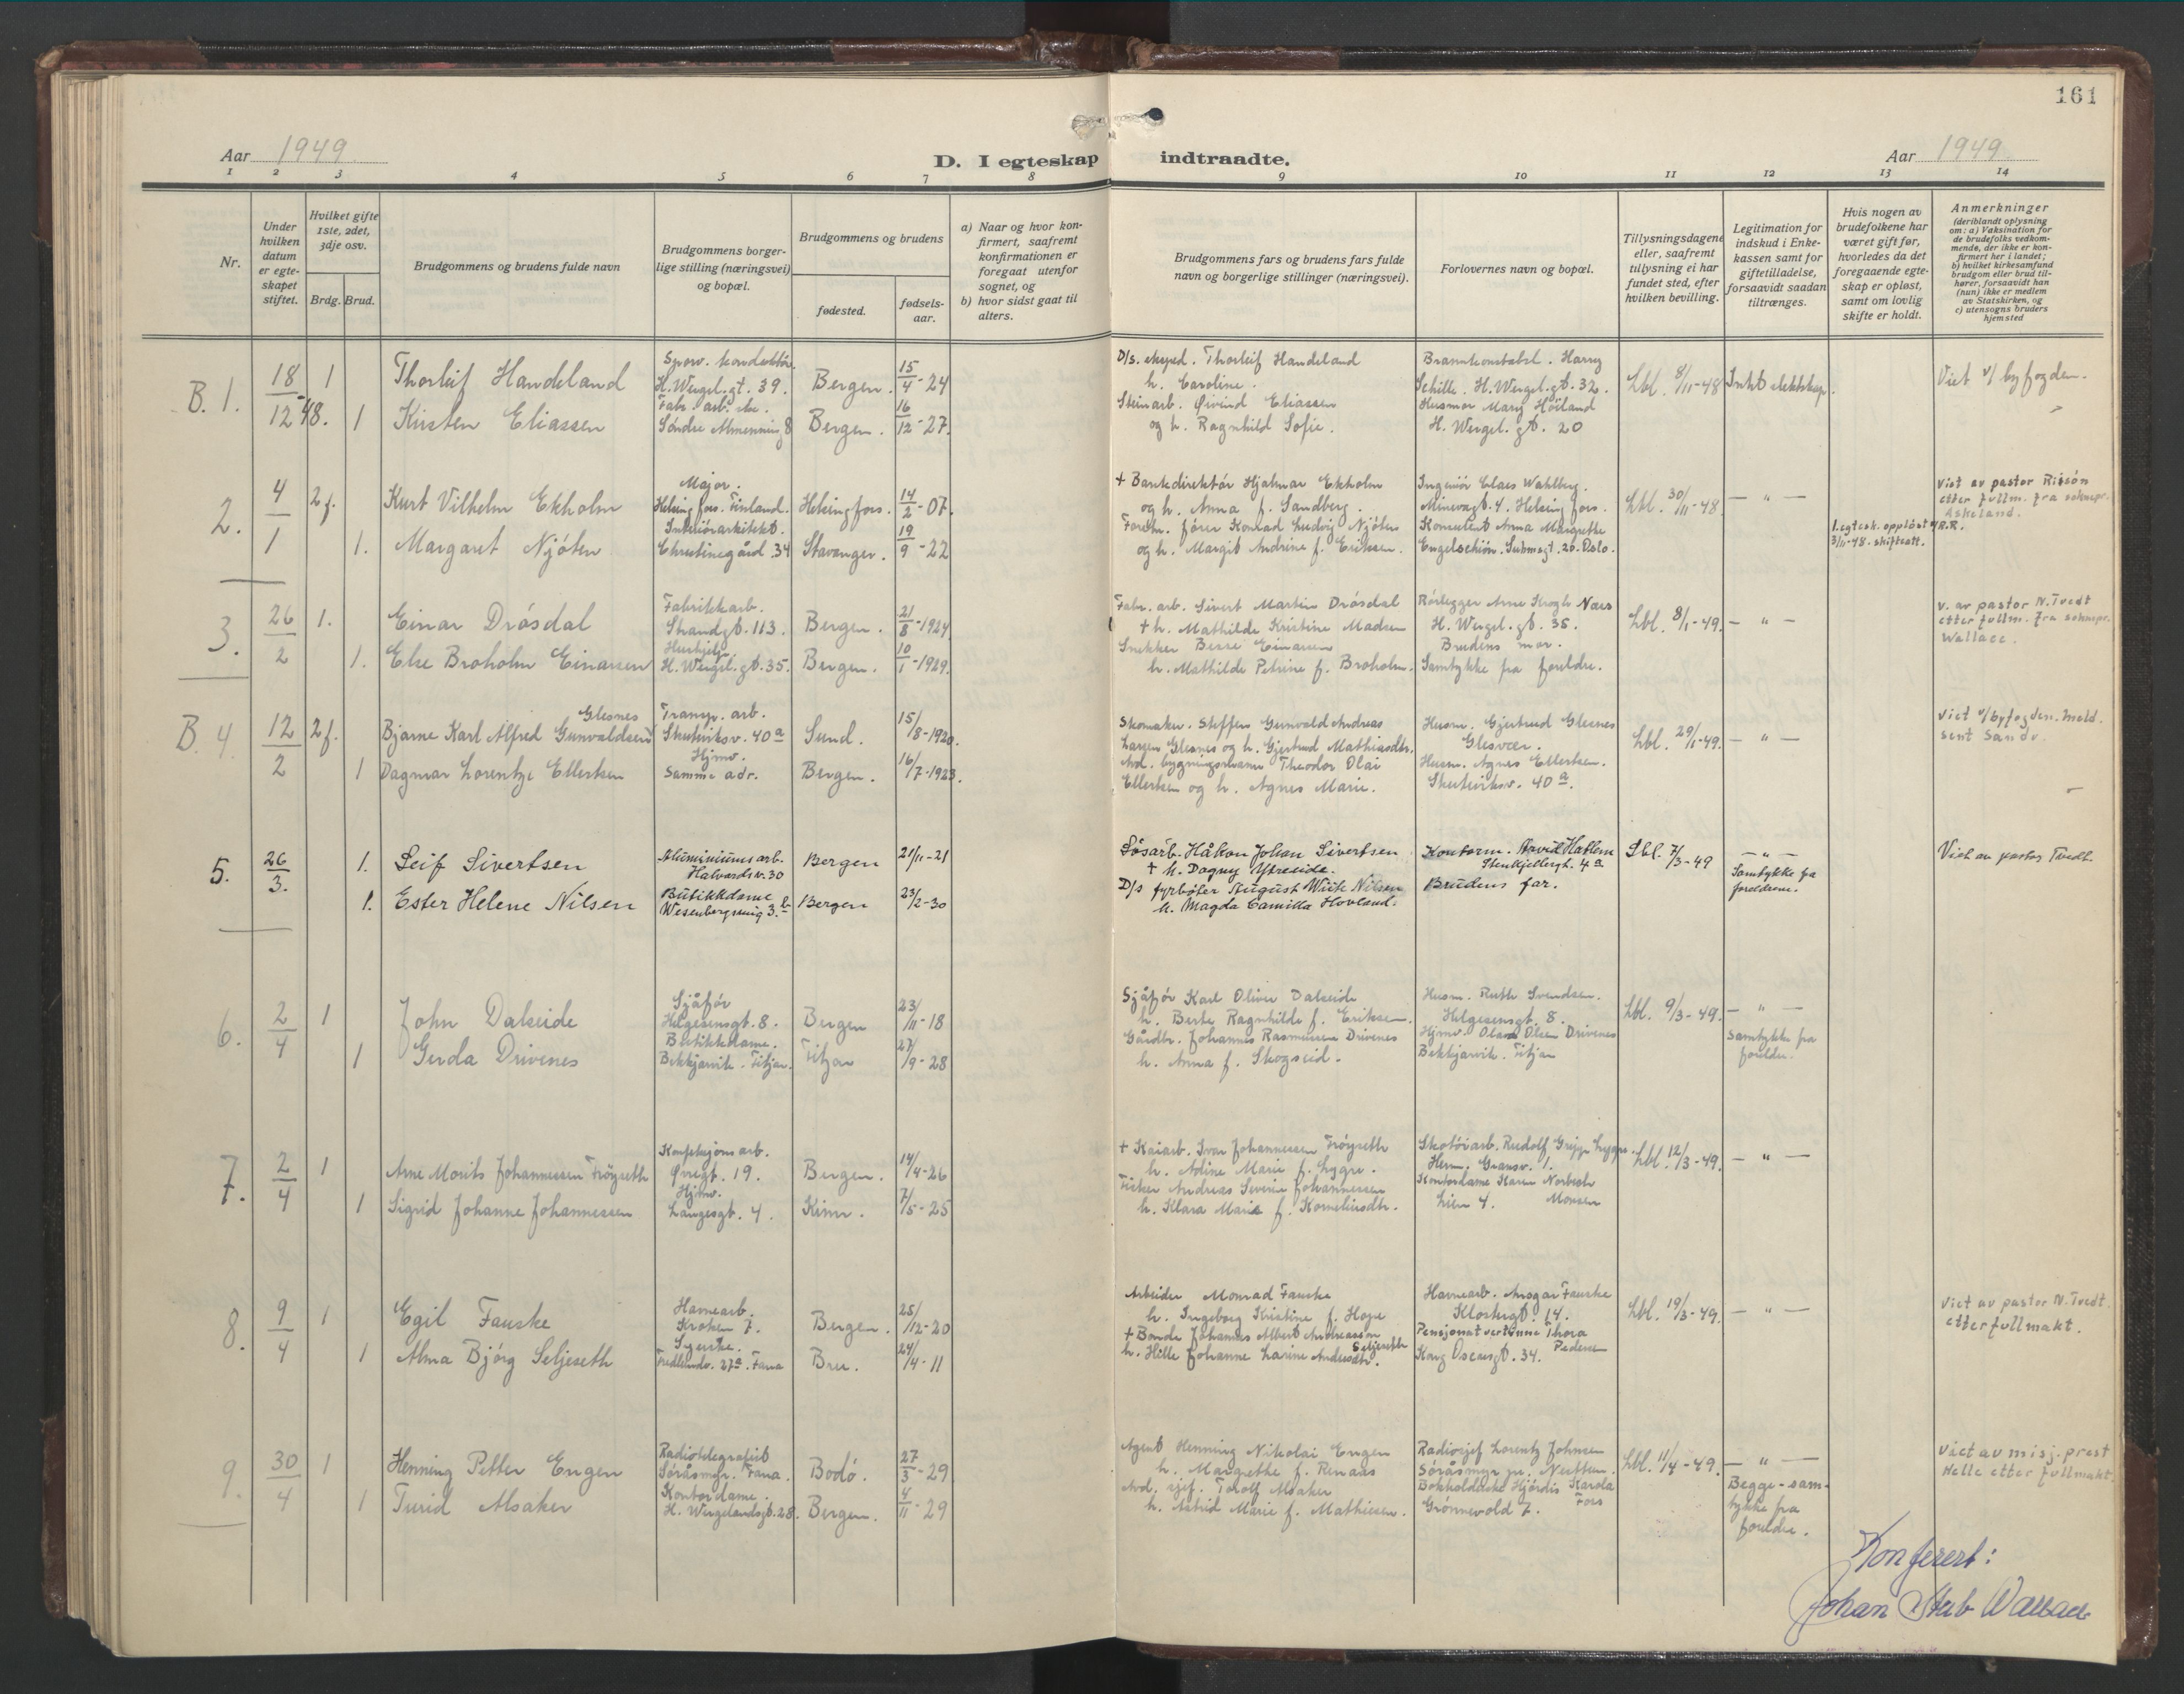 161
Aar 1949
D. I egteskap indtraadte.
Aar 1949
1 2 3 4 5 6 7 8 9 10 11 12 13 14
Nr.
Under hvilken datum er egteskapet stiftet.
Hvilket gifte 1ste, 2det, 3dje osv.
Brdg. Brud.
Brudgommens og brudens fulde navn
Brudgommens borgerlige stilling (næringsvei) og bopæl.
Brudgommens og brudens
fødested.
fødselsaar.
a) Naar og hvor konfirmert, saafremt konfirmationen er foregaat utenfor sognet, og
b) hvor sidst gaat til alters.
Brudgommens fars og brudens fars fulde navn og borgerlige stillinger (næringsvei).
Forlovernes navn og bopæl.
Tillysningsdagene eller, saafremt tillysning ei har fundet sted, efter hvilken bevilling.
Legitimation for indskud i Enkekassen samt for giftetilladelse, forsaavidt saadan tiltrænges.
Hvis nogen av brudefolkene har været gift før, hvorledes da det foregaaende egteskap er opløst, samt om lovlig skifte er holdt.
Anmerkninger
(deriblandt oplysning om: a) Vaksination for de brudefolks vedkommende, der ikke er konfirmert her i landet;
b) hvilket kirkesamfund brudgom eller brud tilhører, forsaavidt han (hun) ikke er medlem av Statskirken, og
c) utensogns bruders hjemsted
B. 1. 18/12-48. 1 Thorleif Handeland
Sporv. konduktør H. Wergel.gt. 39. Bergen. 15/4-24
D/s. eksped. Thorleif Handeland
h. Caroline.
Brannkonstabel. Harry
Schille. H. Wergel.gt. 32
Lbl. 8/11-48
Viet v/ byfogden.
1 Kirsten Eliassen
Fabr. arb.
Søndre Almenning 8 Bergen. 16/12-27.
Steinarb. Øivind Eliassen
og h. Ragnhild Sofie.
Husmor Mary Høiland
H. Wergel. gt. 20
2. 4/1 2g. Kurt Vilhelm Ekholm
Major.
Helsingfors. Finland. Helsingfors. 14/2-07.
+ Bankdirektør Hjalmar Ekholm
og h. Anna f. Sandberg.
Ingeniør Claes Wahlberg.
Minervagt. 4. Helsingfors.
Lbl. 30/11-48. — " —
1. egtesk. oppløst v/R.R.
3/11-48. skifteatt.
Viet av pastor Risøn
etter fullm. fra soknepr.
Askeland.
1. Margaret Njøten
Interiørarkitekt.
Christinegård 34 Stavanger. 19/9-22
Forretn. fører Konrad Ludvig Njøten
og h. Margit Andrine f. Eriksen.
Konsulent Anna Margrethe
Engelschiøn. 20. Oslo.
3. 26/2 1. Einar Drøsdal
Fabrikkarb.
Strandgt. 113. Bergen. 21/8-1924
Fabr. arb. Sivert Martin Drøsdal
+ h. Mathilde Kristine Madsen
Rørlegger Arne Krogh Næss
H. Wergel. gt. 35.
Lbl. 8/1-49. — " —
v. av pastor N. Tvedt
etter fullm. fra soknepr.
Wallace.
1. Else Broholm Einarsen
Hushjelp.
H. Wergel. gt. 35. Bergen. 10/1-1929.
Snekker Einarsen
h. Mathilde Petrine f. Broholm.
Brudens mor.
Samtykke fra foreldre.
B. 4. 12/2 2g. Bjarne Karl Alfred Gunvaldsen Glesnes
Transp. arb.
Skuteviksv. 40a Sund. 15/8-1920.
Skomaker. Steffen Gunvald Andreas
Larsen Glesnes og h. Gjertrud Mathiasdtr.
Husm. Gjertrud Glesnes
Glesvær.
Lbl. 29/1-49. — " —
Viet v/byfogden. Meld.
sent Sandv.
1 Dagmar Lorentze Ellertsen
Hjmv.
Samme adr. Bergen. 16/7-1923.
Avd. bygningsmann Theodor Olai
Ellertsen og h. Agnes Marie.
Husm. Agnes Ellertsen.
Skuteviksv. 40a.
5. 26/3. 1. Leif Sivertsen
Aluminiumsarb.
Halvardsv. 30 Bergen 21/11-21
Løsarb. Håkon Johan Sivertsen
+ h. Dagny Ytreeide.
Kontorm. Arvid Hatlem
Stenkjellergt. 4a
Lbl. 7/3-49 — " —
Samtykke fra
foreldrene.
Viet av pastor Tvedt.
1. Ester Helene Nilsen
Butikkdame
Wesenbergsmug 3b Bergen 23/2-30
D/s fyrbøter August Wiik Nilsen
h. Magda Camilla Hovland.
Brudens far.
6. 2/4 1 John Dalseide
Sjåfør
Helgesensgt. 8. Bergen 23/11-18
Sjåfør Karl Oliver Dalseide
h. Berte Ragnhilde f. Eriksen.
Husm. Ruth Svendsen.
Helgesensgt. 8.
Lbl. 9/3-49. — " —
Samtykke fra
foreldre.
1 Gerda Drivenes
Butikkdame.
Bekkjarvik. Fitjar. Fitjar 27/9-28
Gårdbr. Johannes Rasmussen Drivenes
h. Anna f. Skogseid.
Hjmv. Olsen Drivenes
Bekkjarvik. Fitjar
7. 2/4 1 Arne Morits Johannessen Frøyseth
Konfeksjonsarb.
Øvregt. 19. Bergen. 14/4-26
+ Kaiarb. Ivar Johannessen Frøyseth
h. Adine Marie f. Lygre.
Skotøiarb. Rudolf Gripp Lygre.
Herm. Gransv. 1.
Lbl. 12/3-49. — " —
1 Sigrid Johanne Johannessen
Hjmv.
Langesgt. 4. Kinn. 7/5-25
Fisker Andreas Severin Johannessen
h. Klara Marie f. Korneliusdtr.
Kontordame Karen Norbech
Lien 4. Monsen
8. 9/4 1 Egil Fauske
Havnearb.
Kroken 7. Bergen. 25/12-20
Arbeider Monrad Fauske
h. Ingeborg Kristine f. Hope
Havnearb. Ansgar Fauske
Klostergt. 14.
Lbl. 19/3-49. — " —
Viet av pastor N. Tvedt
etter fullmakt.
1 Alma Bjørg Seljeseth
Syerske.
Fredlundv. 27a. Fana Bru. 24/4-11
+ Bonde Johannes Albert Andreassen Seljeseth
h. Hille Johanne Larine Andersdtr.
Pensjonatvertinne Thora Pedersen
Kong Oscarsgt. 34.
9. 30/4 1 Henning Petter Engen
Radiotelegrafist
Søråsmyr. Fana. Bodø. 27/3-29
Agent Henning Nikolai Engen
h. Margrethe f. Renaas
Radiosjef Lorentz Johnsen
Søråsmyr pr. Nesttun.
Lbl. 11/4-49. — " —
Begge - samtykke fra
foreldre.
Viet av misj. prest
Helle etter fullmakt.
1 Turid Alsaker
Kontordame.
H. Wergelandsgt. 28. Bergen. 4/11-29
Avd. sjef. Torolf Alsaker
h. Astrid Marie f. Mathiesen.
Bokholderske Hjørdis Karola Fors
Grønnevold 7.
Konferert:
Johan Wallace